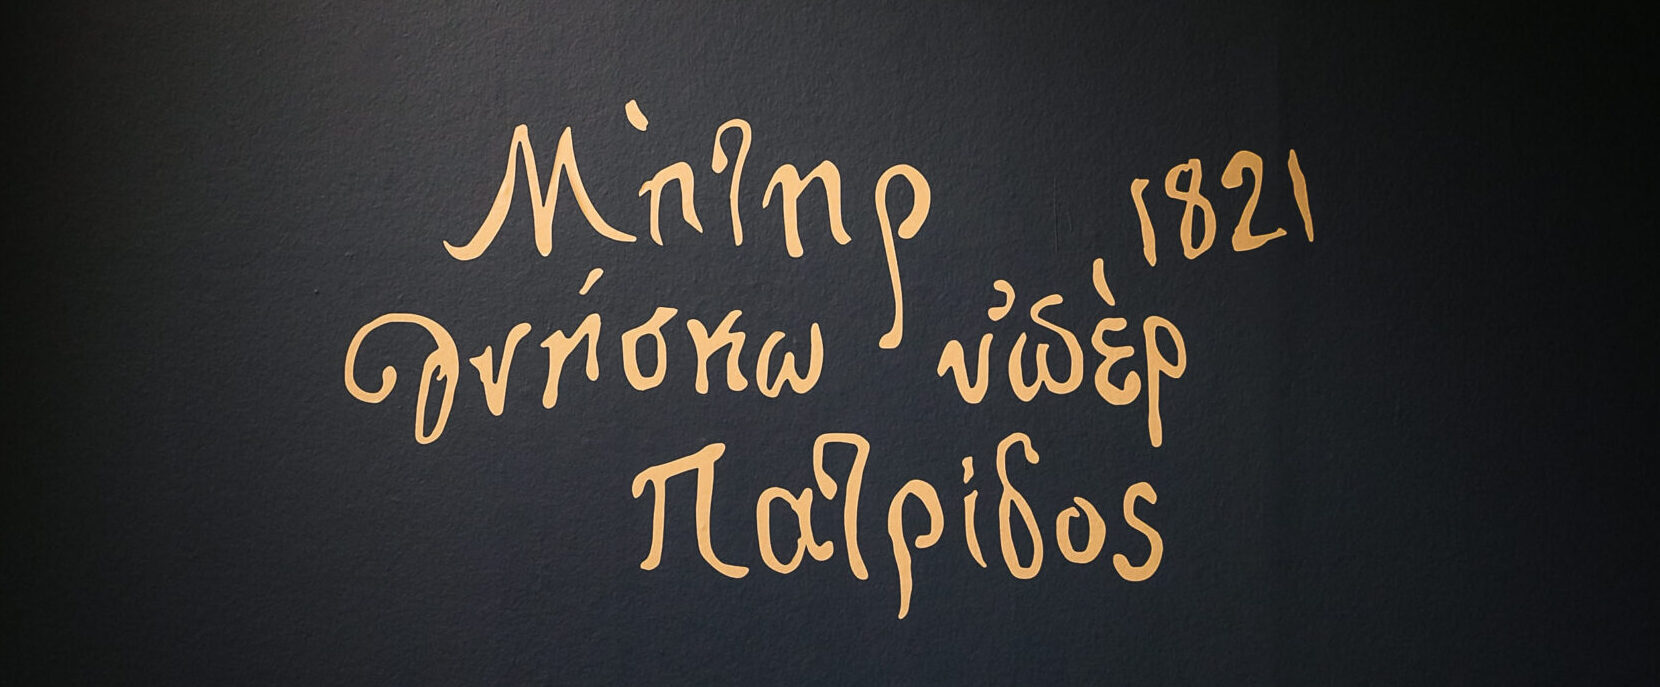 Μὴτηρ 1821
θνήσκω ὑπὲρ
Πατρίδος